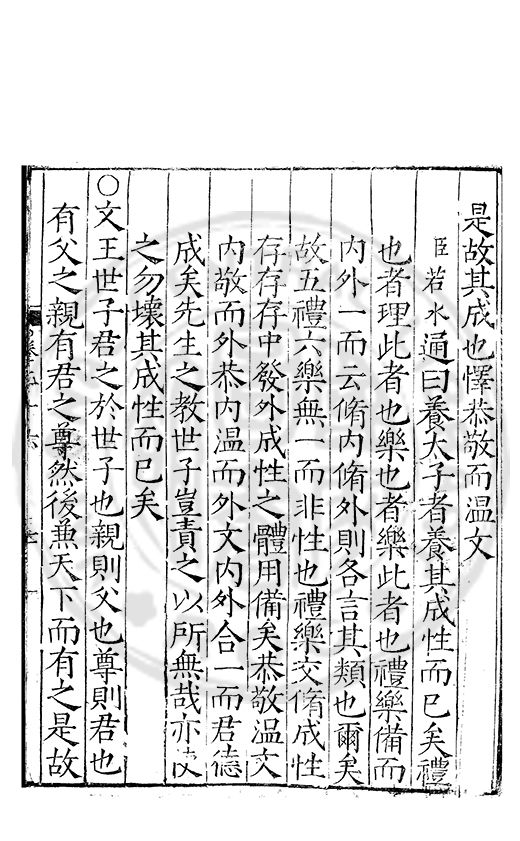 是故其成也懌恭敬而温文
臣若水通曰養太子者養其成性而已矣禮
也者理此者也樂也者樂此者也禮樂備而
内外一而云脩内脩外則各言其類也爾矣
故五禮六樂無一而非性也禮樂交脩成性
存存存中發外成性之體用備矣恭敬温文
内敬而外恭内温而外文内外合一而君德
成矣先生之教世子豈責之以所無哉亦使
之勿壞其成性而已矣
○文王世子君之於世子也親則父也尊則君也
有父之親有君之尊然後兼天下而有之是故